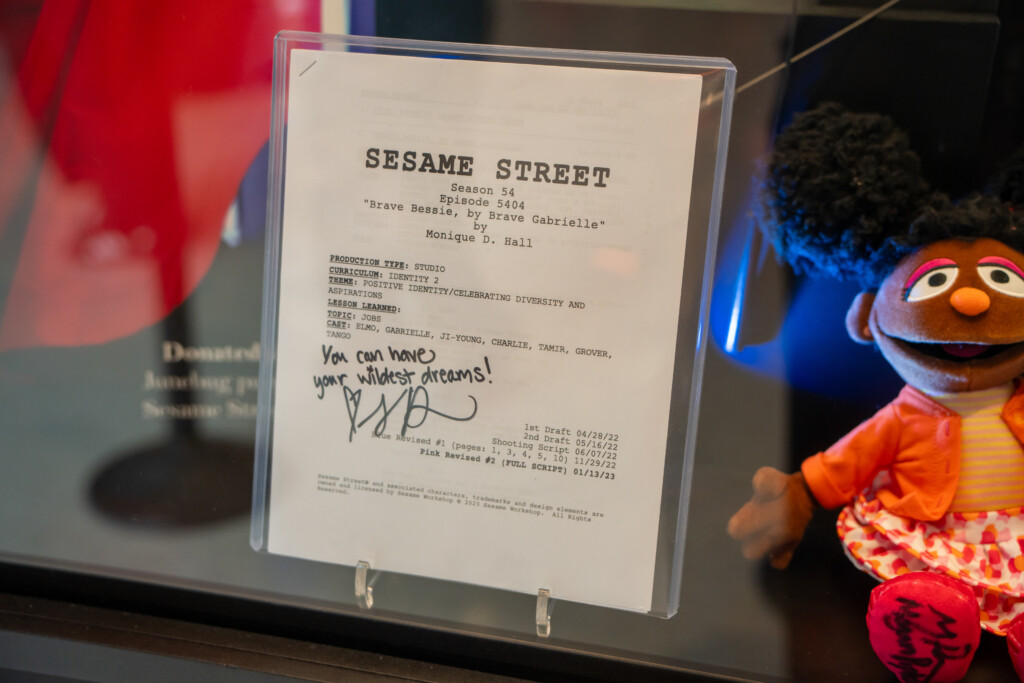 SESAME STREET
Season 54
Episode 5404
"Brave Bessie, by Brave Gabrielle"
by
Monique D. Hall
PRODUCTION TYPE: STUDIO
CURRICULUM: IDENTITY 2
THEME: POSITIVE IDENTITY/CELEBRATING DIVERSITY AND
ASPIRATIONS
LESSON LEARNED:
TOPIC: JOBS
CAST: ELMO, GABRIELLE, JI-YOUNG, CHARLIE, TAMIR, GROVER,
TANGO
You can have
your wildest dreams!
1st Draft 04/28/22
2nd Draft 05/16/22
Shooting Script 06/07/22
Revised #1 (pages: 1, 3, 4, 5, 10) 11/29/22
Pink Revised #2 (FULL SCRIPT) 01/13/23
Sesame Street® and associated characters, trademarks and design elements are
owned and licensed by Sesame Workshop © 2023 Sesame Workshop. All Rights
Reserved.
Donated
Junebug
Sesame